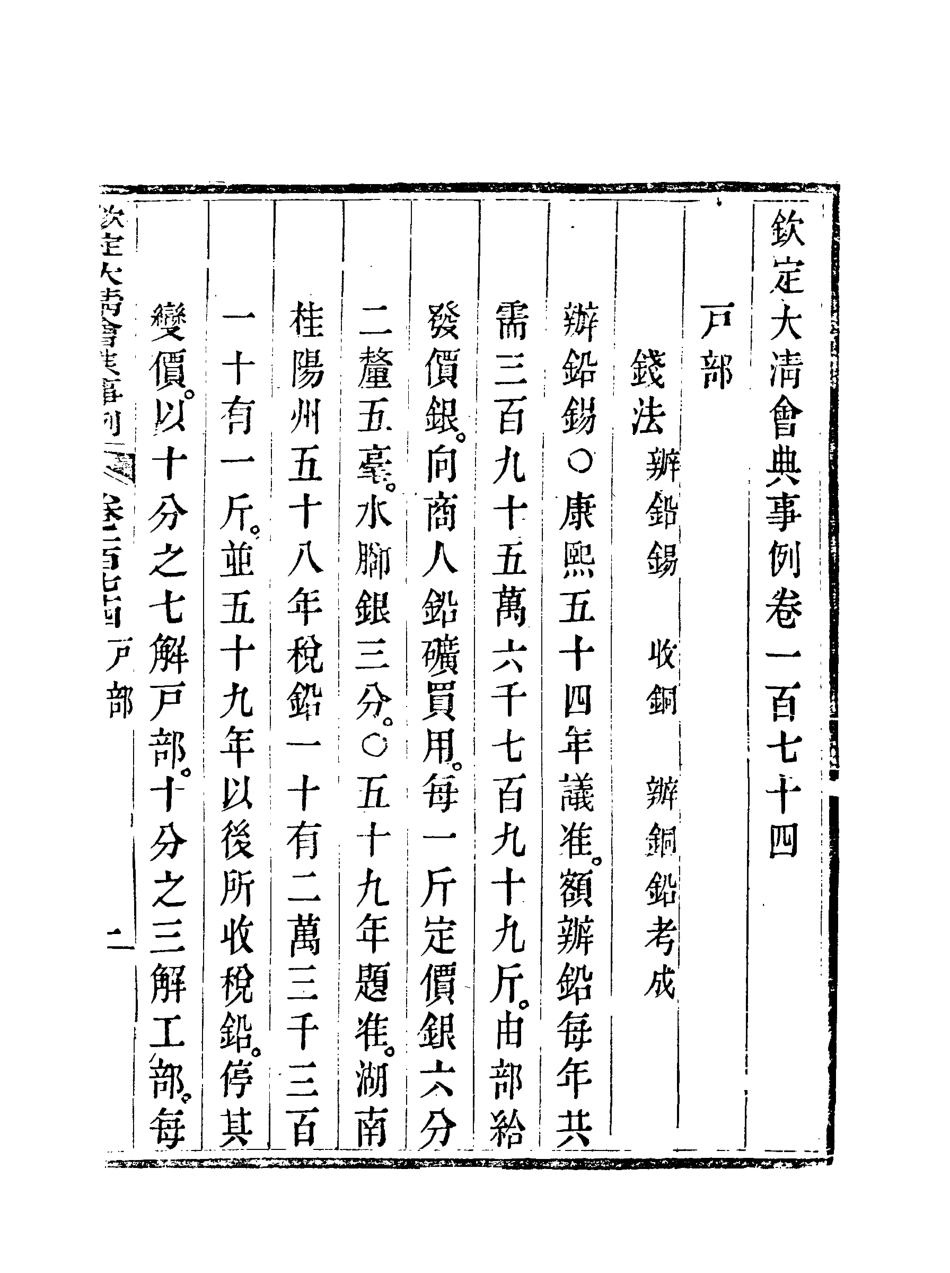 欽定大淸會典事例卷一百七十四
戸部
錢法 辦鉛錫 收銅 辦銅鉛考成
辦鉛錫○康熙五十四年議准。額辦鉛每年共
需三百九十五萬六千七百九十九斤。由部給
發價銀。向商人鉛礦買用。每一斤定價銀六分
二釐五毫。水腳銀三分。○五十九年題准。湖南
桂陽州五十八年稅鉛一十有二萬三千三百
一十有一斤。並五十九年以後所收稅鉛。停其
變價。以十分之七解戸部。十分之三解工部。每
欽定大淸會典事例 卷一百七十四 戸部 一